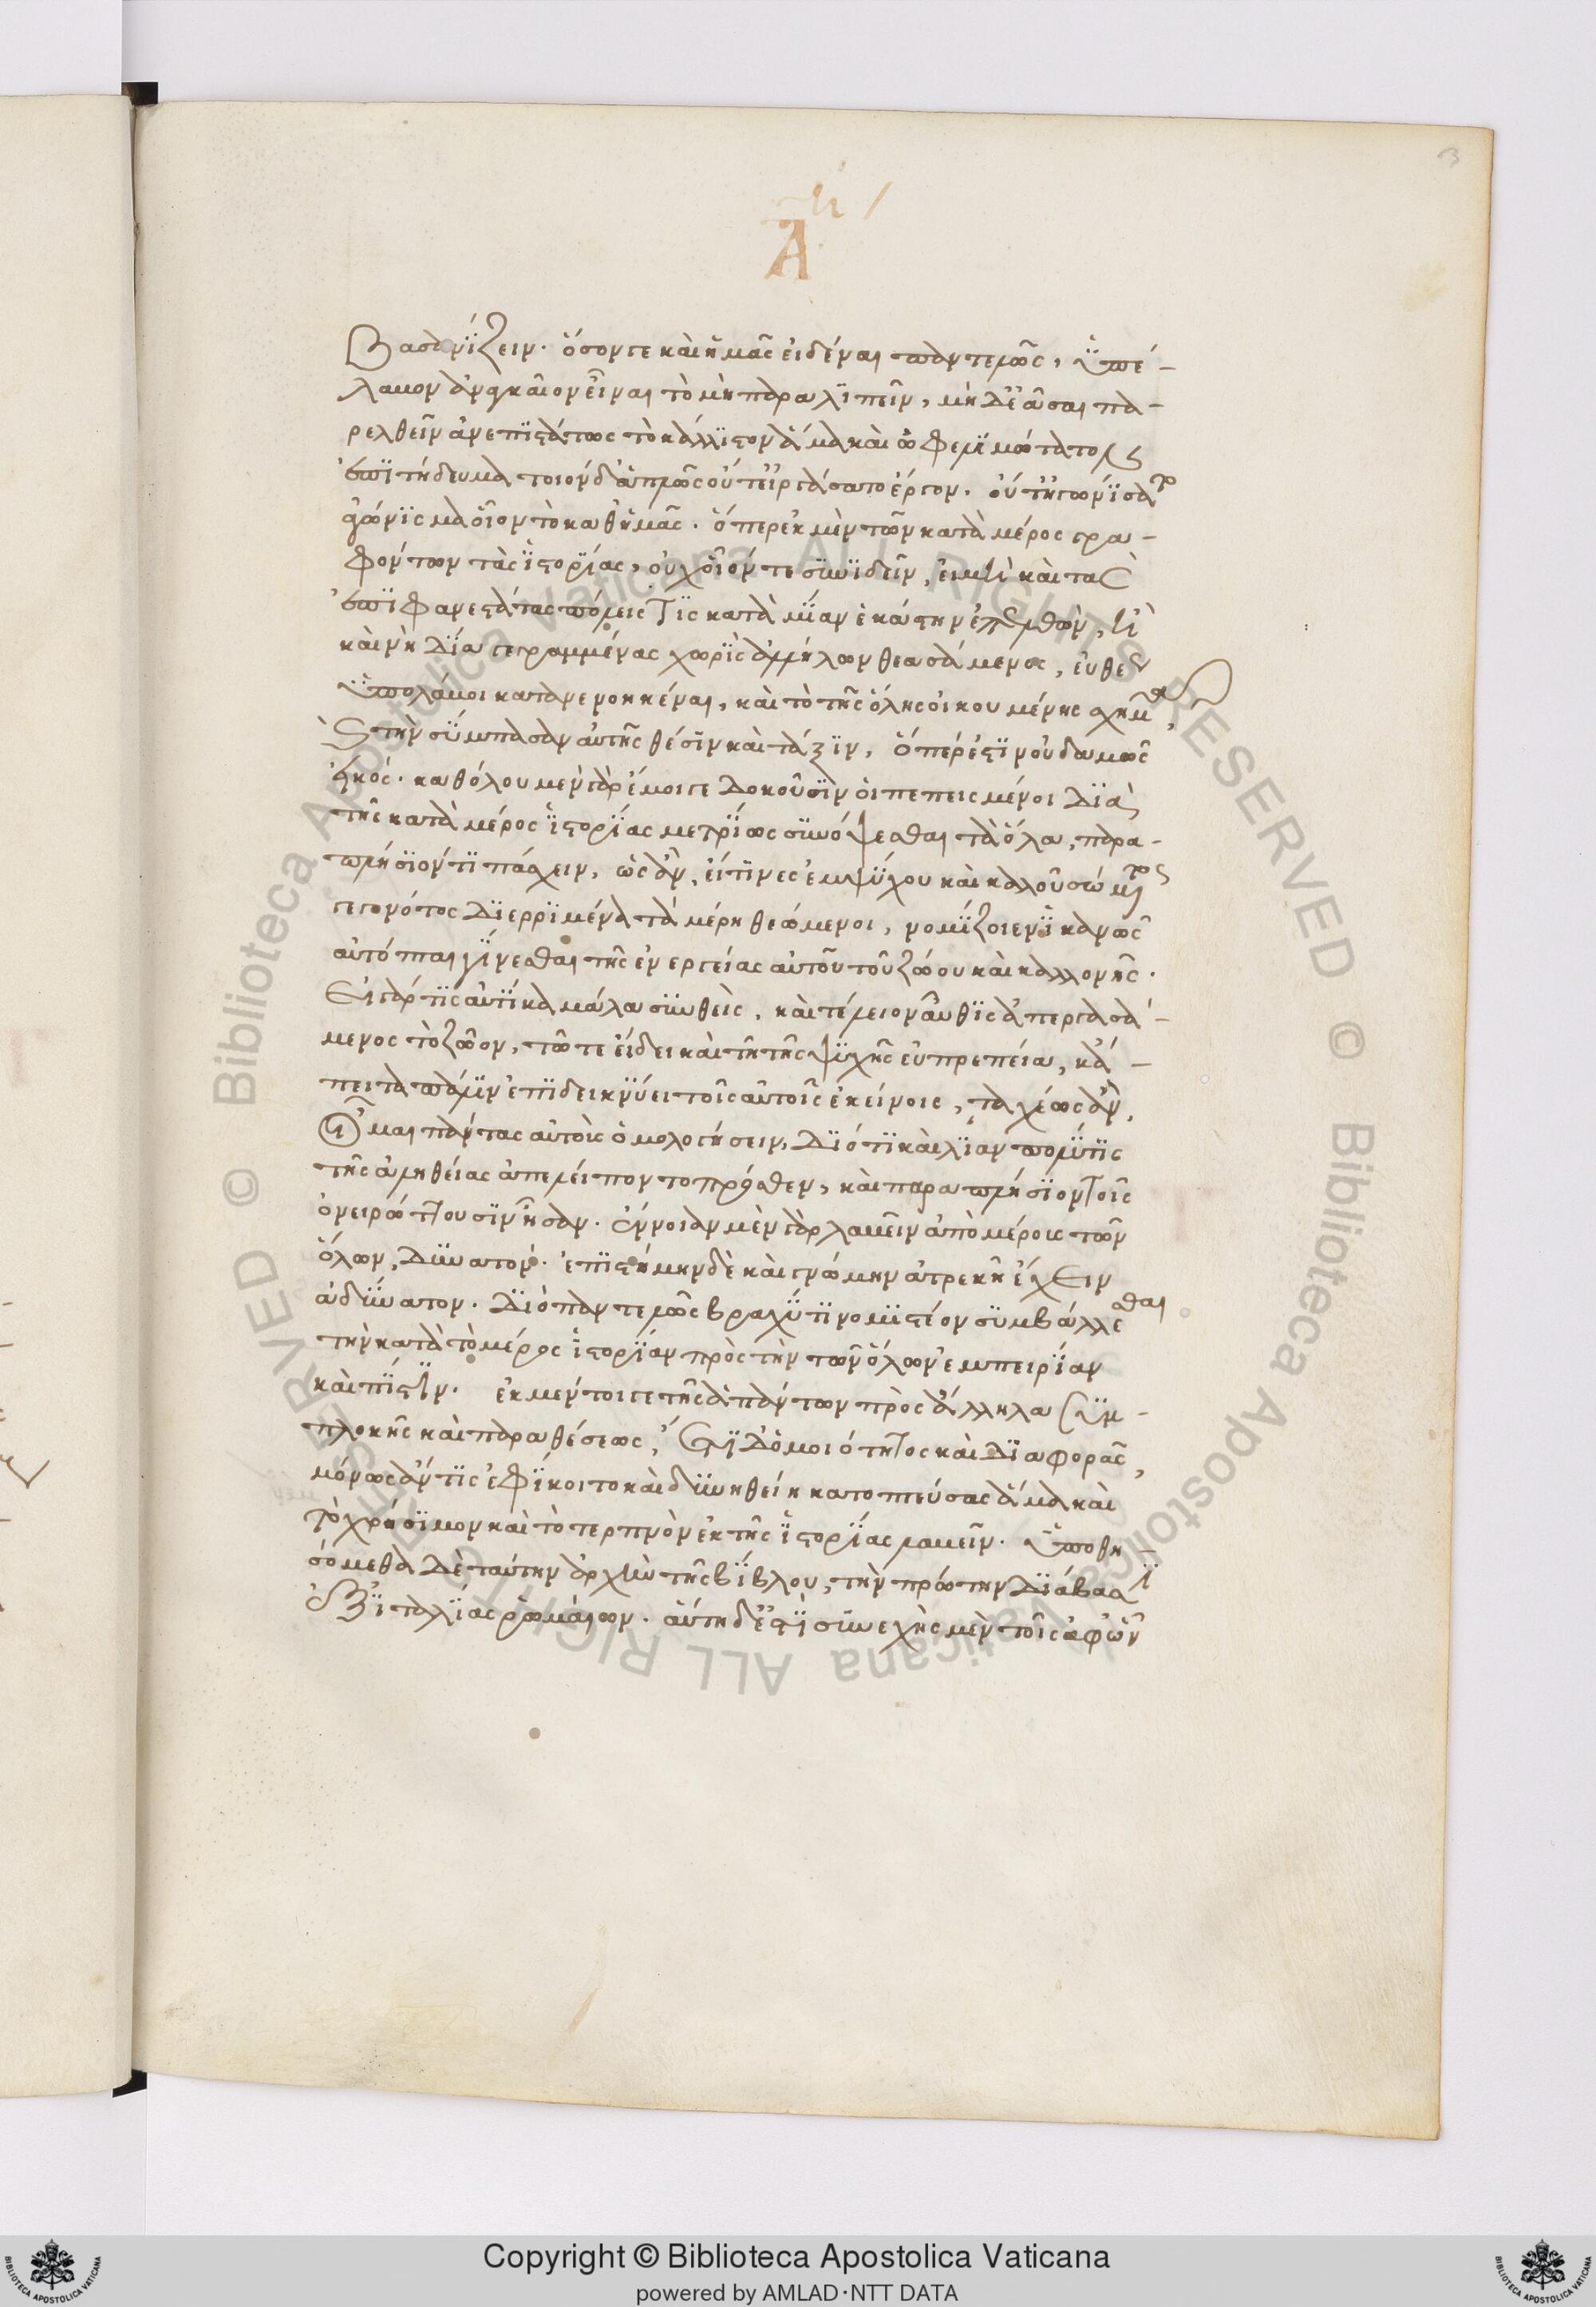 3
Α
βαστανίζειν· ὅσόν γε καὶ ἡμᾶς εἰδέναι παντελῶς, ὑπέ-
λαβον ἀναγκαῖον εἶναι τὸ μὴ παραλιπεῖν, μὴ δ' ἐᾶσαι πα-
ρελθεῖν ἀνεπιστάτως τὸ κάλλιστον ἅμα καὶ ὠφελιμώτατον
ἐπιτήδευμα τοιόνδ' ἁπλῶς οὔτ' εἰργάσατο ἔργον· οὔτ' ἠγωνίσατο
ἀγώνισμα οἷον τὸ καθ' ἡμᾶς· ὅπερ ἐκ μὲν τῶν κατὰ μέρος γρα-
φόντων τὰς ἱστορίας, οὐχ οἷόν τε συνιδεῖν, εἰ μὴ καὶ τὰς
ἐπιφανεστάτας πόλεις τις κατὰ μίαν ἑκάστην ἐπελθὼν, ἢ
καὶ νὴ Δία γεγραμμένας χωρὶς ἀλλήλων θεασάμενος, εὐθέως
ὑπολάβοι κατανενοηκέναι, καὶ τὸ τῆς ὅλης οἰκουμένης σχῆμα,
καὶ τὴν σύμπασαν αὐτῆς θέσιν καὶ τάξιν, ὅπερ ἐστὶν οὐδαμῶς
εἰκός· καθόλου μὲν γὰρ ἔμοιγε δοκοῦσιν οἱ πεπεισμένοι διὰ
τῆς κατὰ μέρος ἱστορίας μετρίως συνόψεσθαι τὰ ὅλα, παρα-
πλήσιόν τι πάσχειν, ὡς ἂν, εἴ τινες ἐμψύχου καὶ καλοῦ σώματος
γεγονότος διερριμένα τὰ μέρη θεώμενοι, νομίζοιεν ἱκανῶς
αὐτόπται γίνεσθαι τῆς ἐνεργείας αὐτοῦ τοῦ ζώου καὶ καλλονῆς·
Εἰ γάρ τις αὐτίκα μάλα συνθεὶς, καὶ τέλειον αὖθις ἀπεργασά-
μενος τὸ ζῶον, τῶ τε εἴδει καὶ τῆ τῆς ψυχῆς εὐπρεπεία, κἄ-
πειτα πάλιν ἐπιδεικνύει τοῖς αὐτοῖς ἐκείνοις, ταχέως ἂν,
οἶμαι πάντας αὐτοὺς ὁμολογήσειν, διότι καὶ λίαν πολύ τις
τῆς ἀληθείας ἀπελείποντο πρόσθεν, καὶ παραπλήσιον τοῖς
ὀνειρώττουσιν ἦσαν· ἔννοιαν μὲν γὰρ λαβεῖν ἀπὸ μέρους τῶν
ὅλων, δυνατόν· ἐπιστήμην δὲ καὶ γνώμην ἀτρεκῆ ἔχειν
ἀδύνατον· Διὸ παντελῶς βραχύ τι νομιστέον συμβάλλεσθαι
τὴν κατὰ τὸ μέρος ἱστορίαν πρὸς τὴν τῶν ὅλων ἐμπειρίαν
καὶ πίστιν· ἐκ μέντοι γε τῆς ἁπάντων πρὸς ἄλληλα συμ-
πλοκῆς καὶ παραθέσεως, ἔτι δ' ὁμοιότητος καὶ διαφορᾶς,
μόνως ἄν τις ἐφίκοιτο καὶ δυνηθείη κατοπτεύσας ἅμα καὶ
τὸ χρήσιμον καὶ τὸ τερπνὸν ἐκ τῆς ἱστορίας λαβεῖν· ὑποθη-
σόμεθα δὲ ταύτην ἀρχὴν τῆς βίβλου, τὴν πρώτην διάβασιν
ἐξ ἰταλίας ῥωμαίων· αὕτη δ' ἐστὶ συνεχὴς μὲν τοῖς ἀφ' ὧν
Copyright © Biblioteca Apostolica Vaticana
powered by AMLAD·NTT DATA